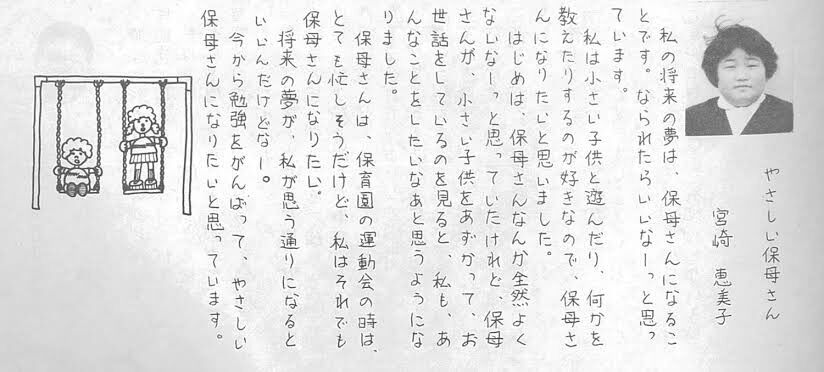 やさしい保母さん
宮崎 恵美子
私の将来の夢は、保母さんになるこ
とです。なられたらいいなーっと思っ
ています。
私は小さい子供と遊んだり、何かを
教えたりするのが好きなので、保母さ
んになりたいと思いました。
はじめは、保母さんなんか全然よく
ないなーっと思っていたけれど、保母
さんが、小さい子供をあずかって、お
世話をしているのを見ると、私も、あ
んなことをしたいなあと思うようにな
りました。
保母さんは、保育園の運動会の時は、
とても忙しそうだけど、私はそれでも
保母さんになりたい。
将来の夢が、私が思う通りになると
いいんだけどなー。
今から勉強をがんばって、やさしい
保母さんになりたいと思っています。